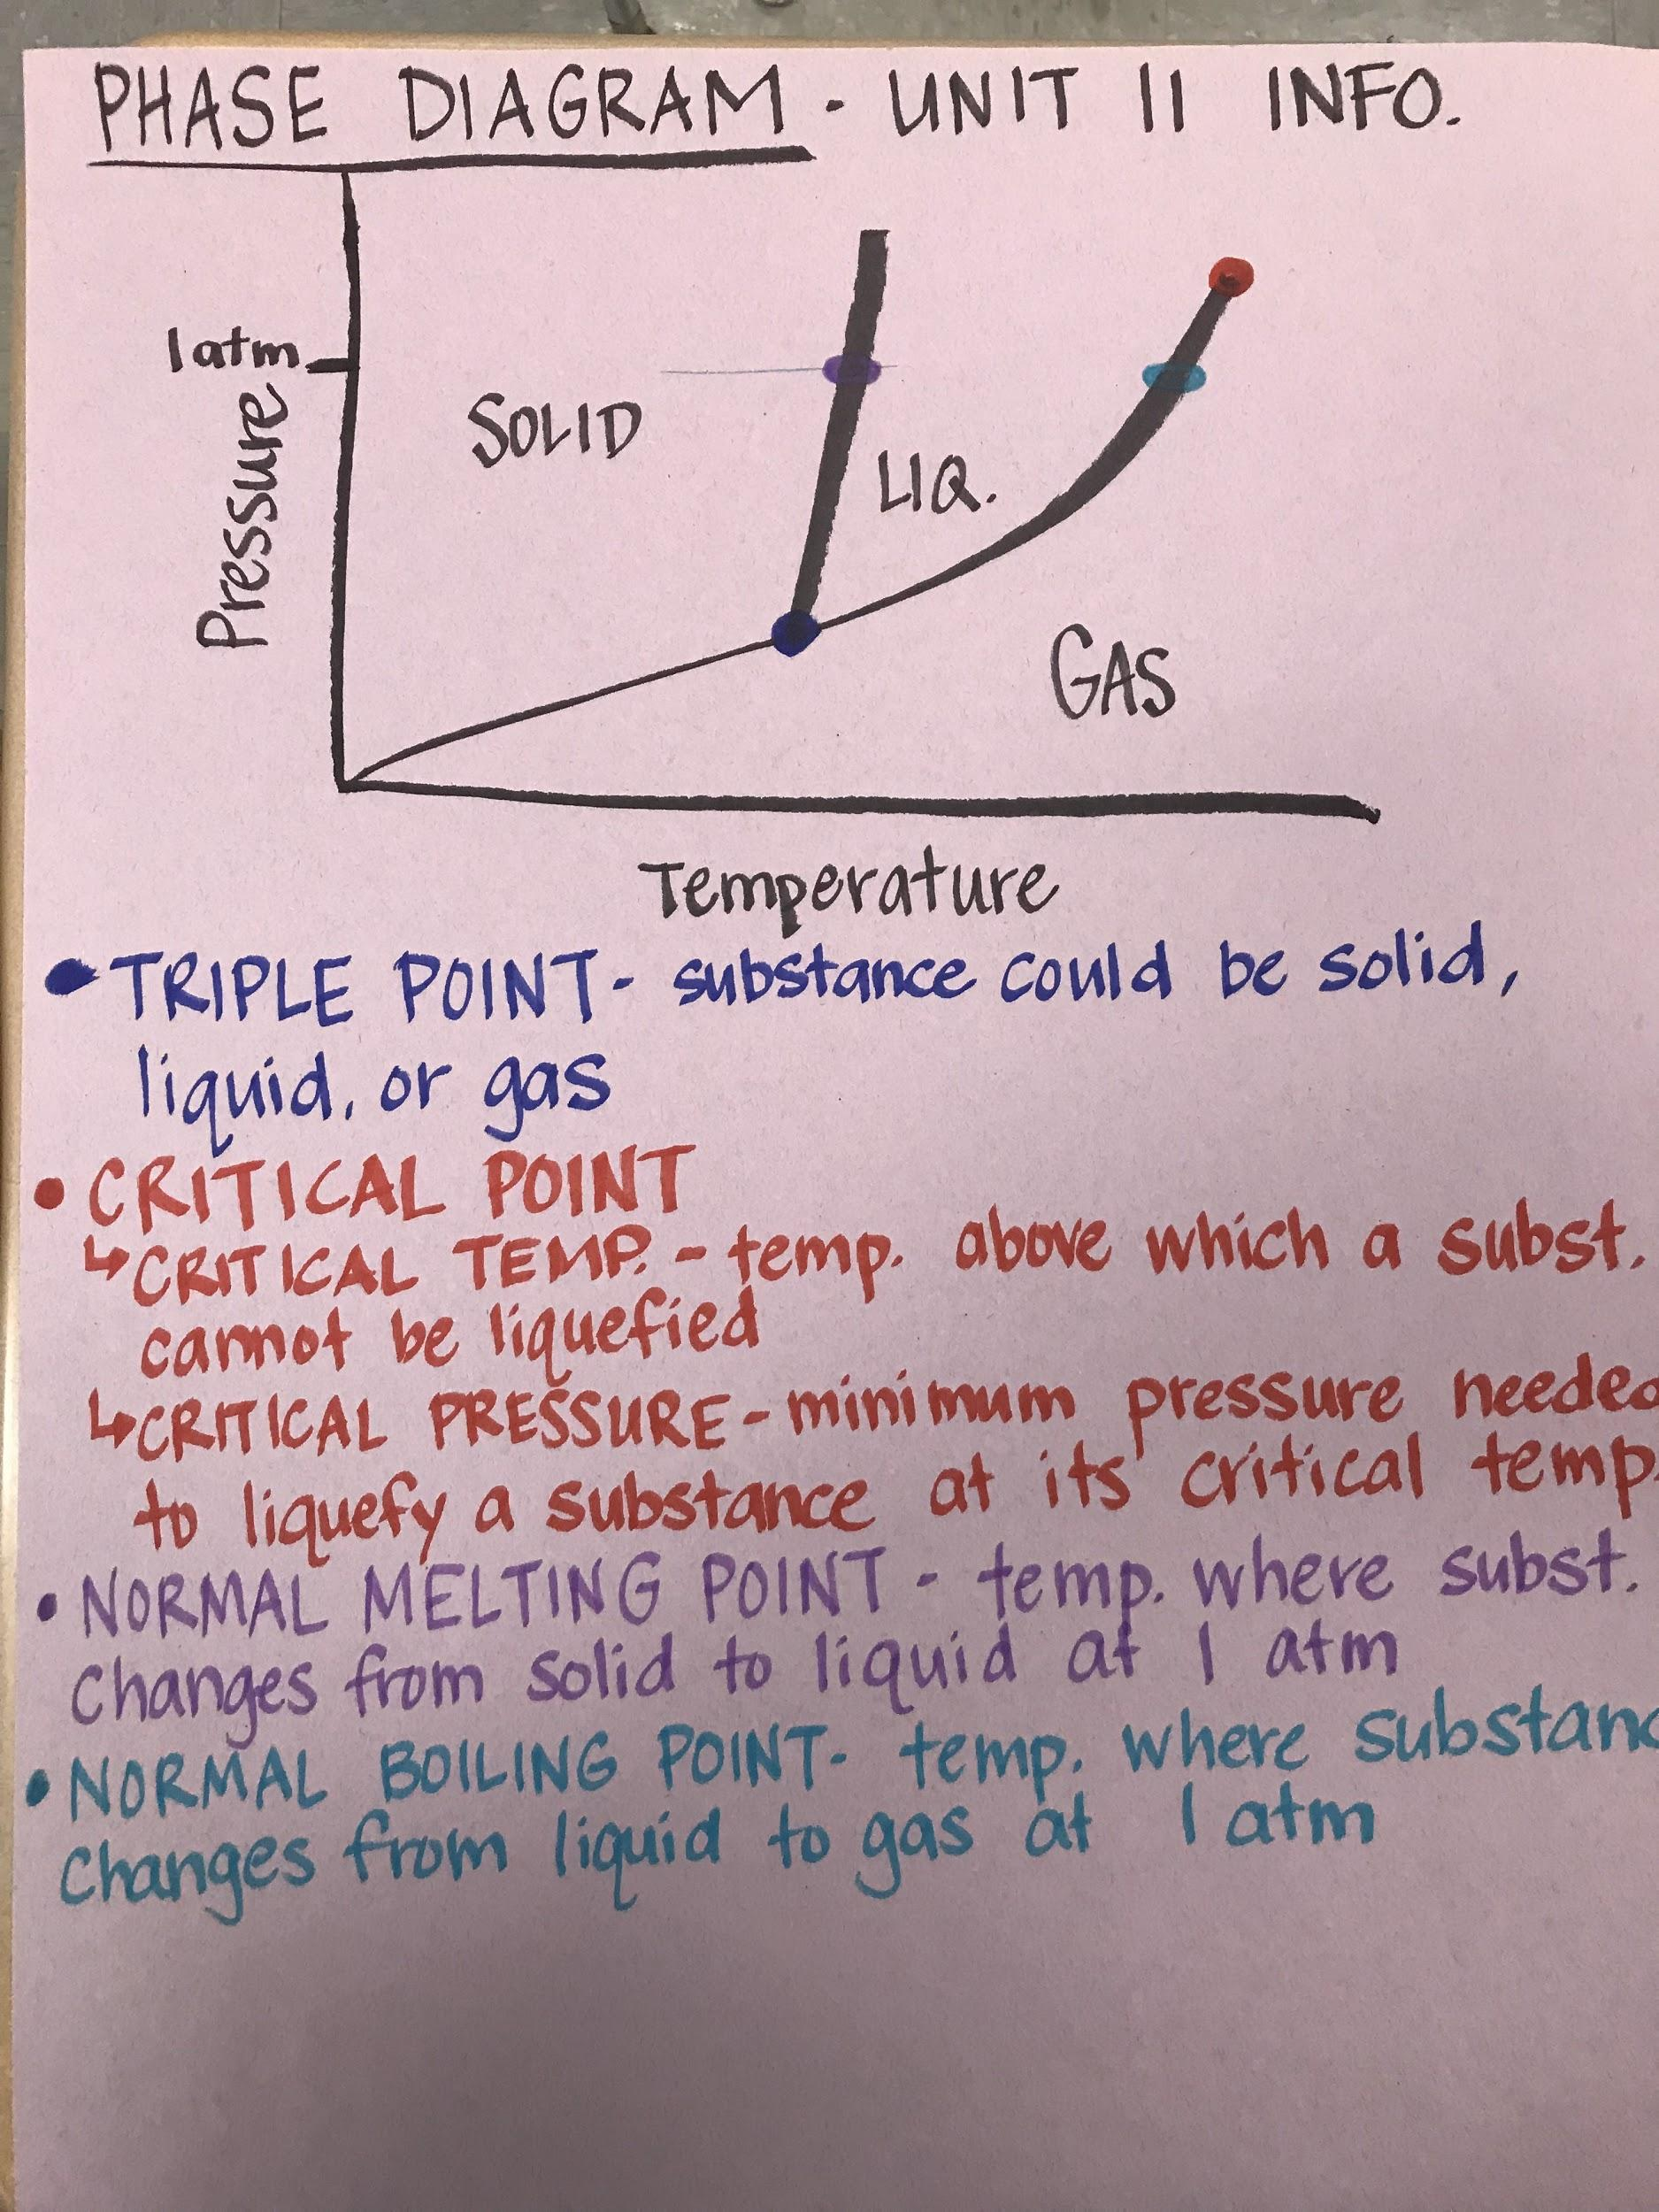 PHASE DIAGRAM - UNIT 11 INFO.
1 atm
Pressure
SOLID
LIQ.
GAS
Temperature
• TRIPLE POINT - substance could be solid,
liquid, or gas
• CRITICAL POINT
↳ CRITICAL TEMP. - temp. above which a subst.
cannot be liquefied
↳ CRITICAL PRESSURE - minimum pressure needed
to liquefy a substance at its critical temp.
• NORMAL MELTING POINT - temp. where subst.
changes from solid to liquid at 1 atm
• NORMAL BOILING POINT - temp. where substanc
changes from liquid to gas at 1 atm